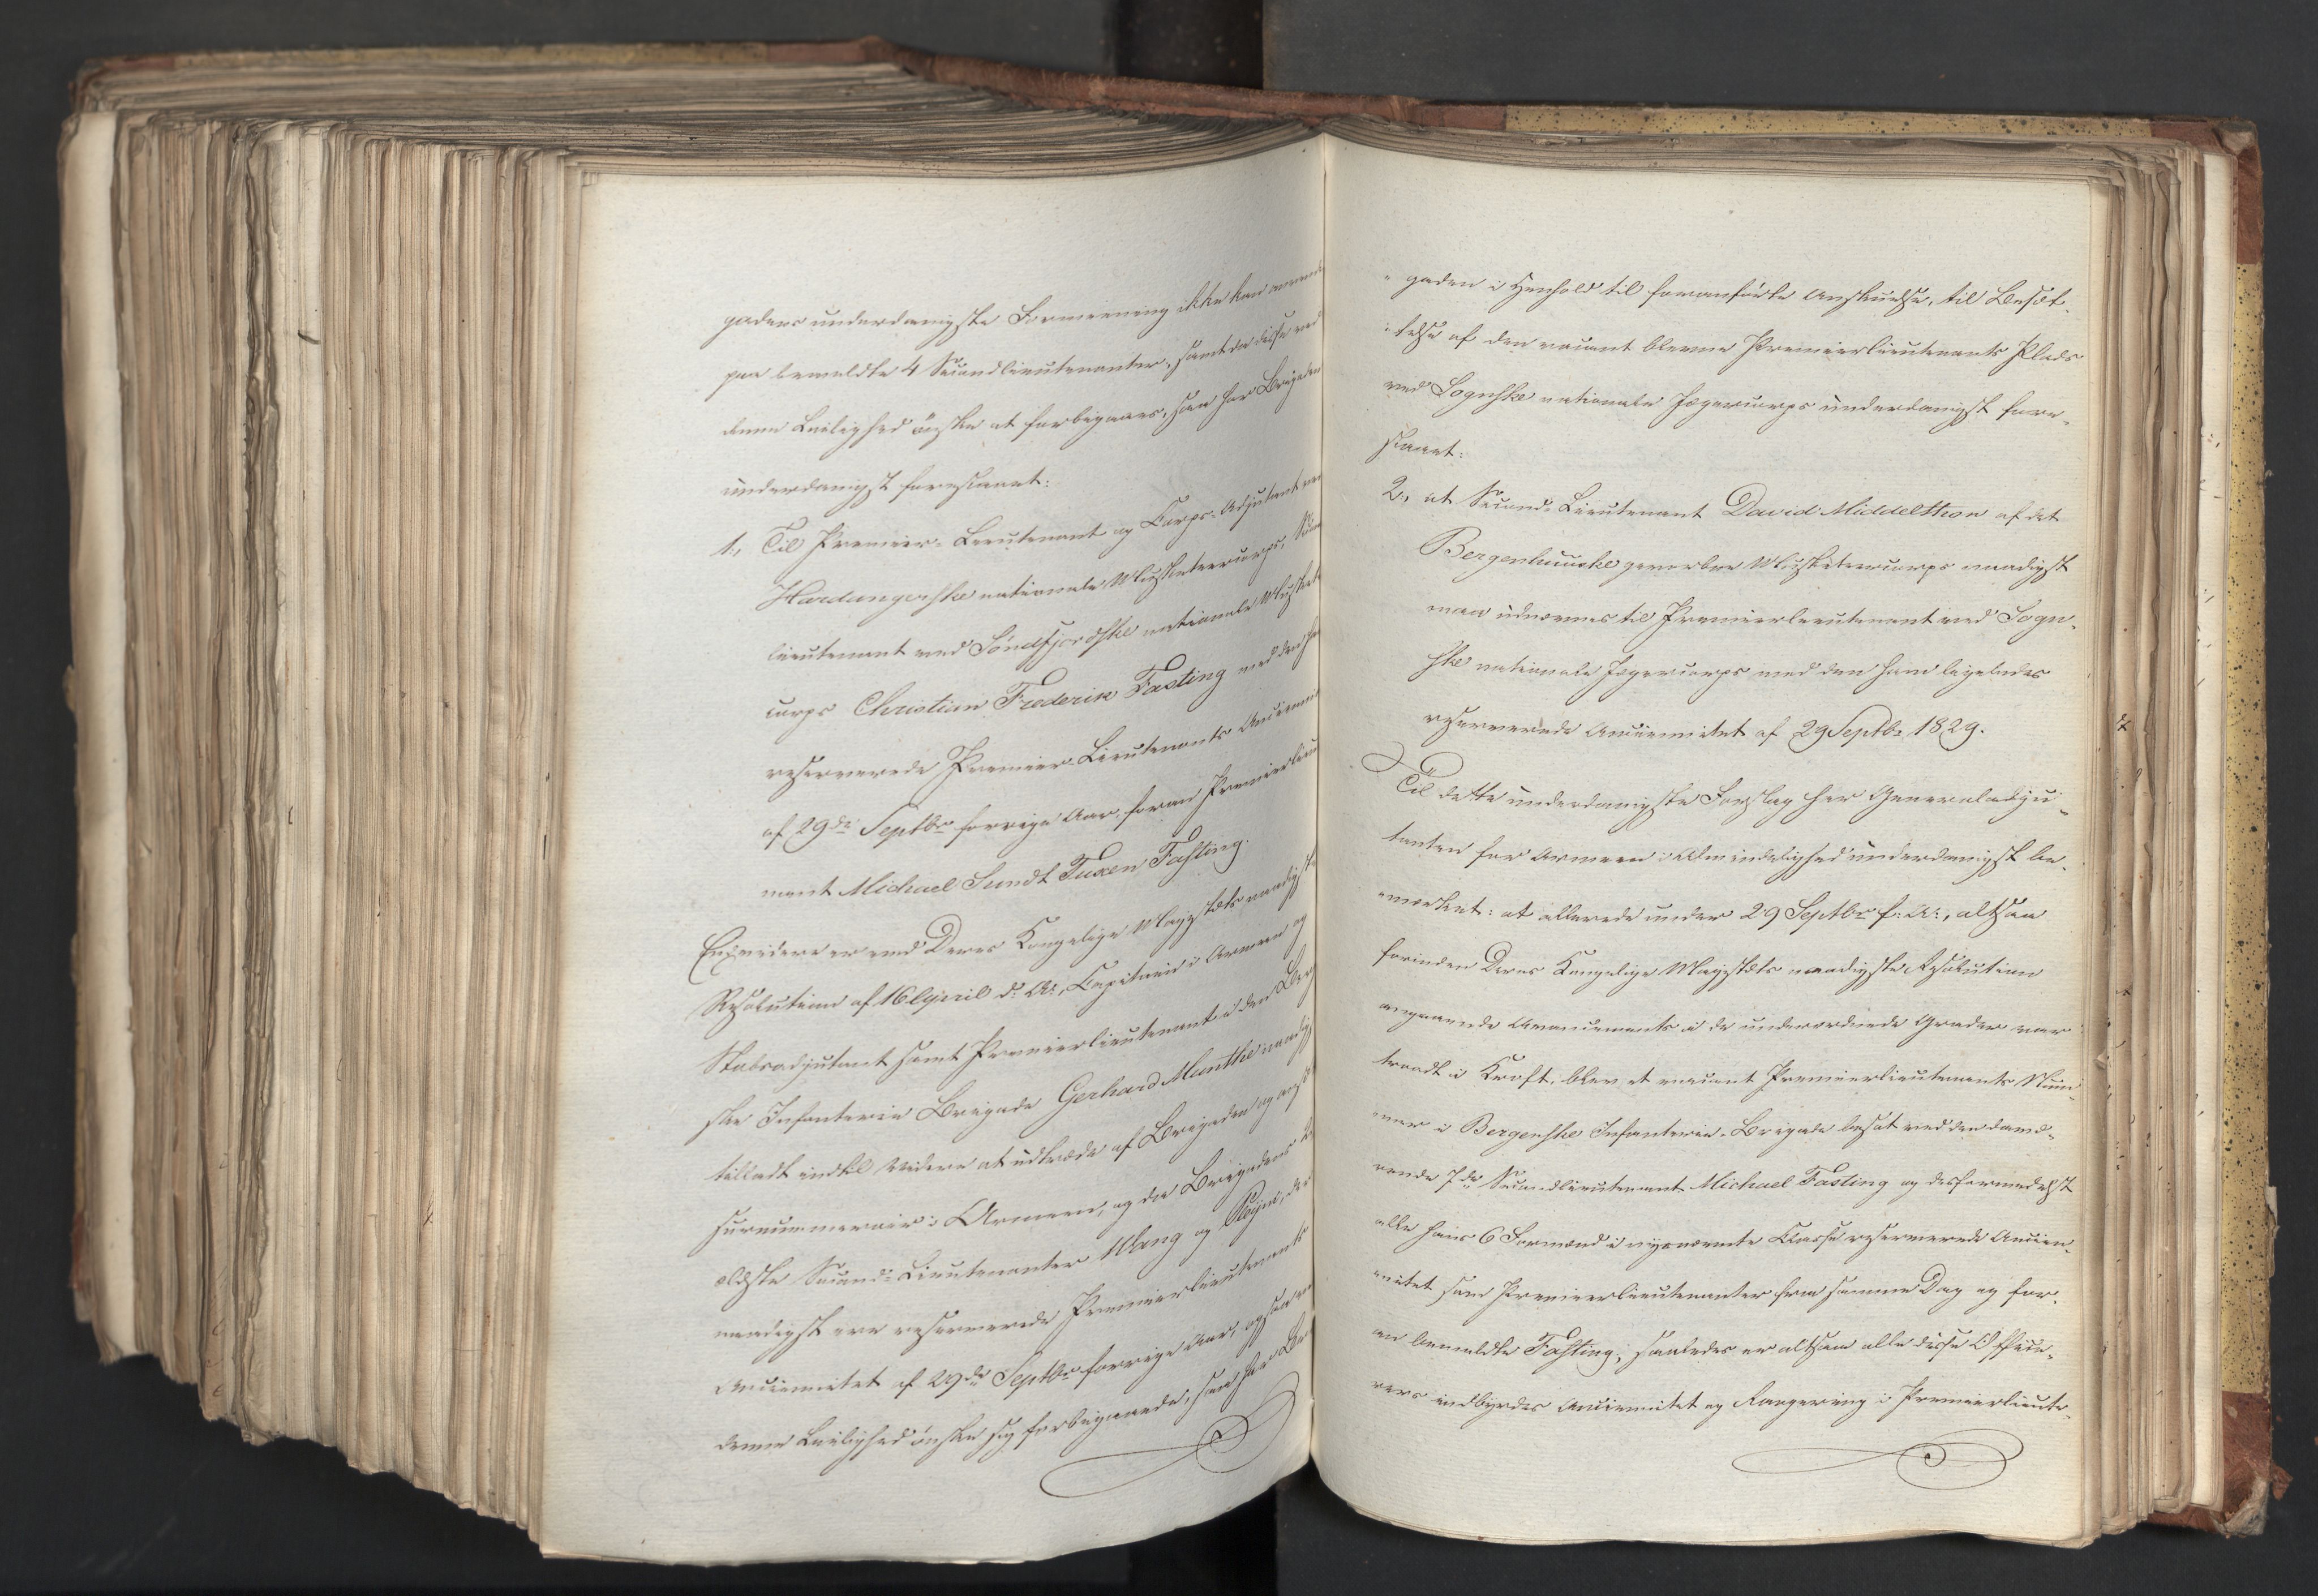 gadens underdanigste Formeening ikke kan anvend
paa bemeldte 4 Secondlieutenanter, samt da disse ved
denne Leilighed ønske at forbigaaes, saa har Brigaden
underdanigst foreslaaet:
1., Til Premier-Lieutenant og Corps-Adjutant ved
Hardangerske nationale Musketeercorps,
lieutenant ved Søndfjordske nationale Musket
corps Christian Frederik Fasting med den ha
reserverede Premier-Lieutenants Anciennit
af 29de Septbr forrige Aar, foran Premierlieu
nant Michael Sundt Tuxen Fasting.
Endvidere er ved Deres Kongelige Majestæts naadigste
Resolution af 16 April d: A:, Capitain i Armeen og
Stabsadjutant samt Premierlieutenant i den Berg
ske Infanterie Brigade Gerhard Munthe naadig
tilladt indtil Videre at udtræde af Brigaden og
surnummerair i Armeen, og da Brigadens 2
ældste Second-Lieutenanter Wang og der
naadigst ere reserverede Premierlieutenants
Anciennitet af 29de Septbr forrige Aar, ogsaa ved
denne Leilighed ønske sig forbigaaede, saa har Bri
gaden i Henhold til foranførte Anskuelse, til Besæt-
telse af den vacant blevne Premierlieutenants Plads
ved Sognske nationale Jægercorps underdanigst fore-
slaaet:
2., at Second-Lieutenant David Middelthon af det
Bergenhuuske gevorbne Musketeercorps naadigst
maa udnævnes til Premierlieutenant ved Sogn-
ske nationale Jægercorps med den ham ligeledes
reserverede Anciennitet af 29 Septbr 1829.
Til dette underdanigste Forslag har Generaladju-
tanten for Armeen i Almindelighed underdanigst be-
mærket: at allerede under 29 Septbr f: A:, altsaa
forinden Deres Kongelige Majestæts naadigste Resolution
angaaende Avancements i de underordnede Grader var
traadt i Kraft, blev et vacant Premierlieutenants Num-
mer i Bergenske Infanterie-Brigade besat med den davæ-
rende 7de Secondlieutenant Michael Fasting og desformedelst
alle hans 6 Formænd i nysnævnte Classe reserverede Ancien-
nitet som Premierlieutenanter fra samme Dag og for-
an bemeldte Fasting; saaledes er altsaa alle disse Office-
rers indbyrdes Anciennitet og Rangering i Premierlieute-